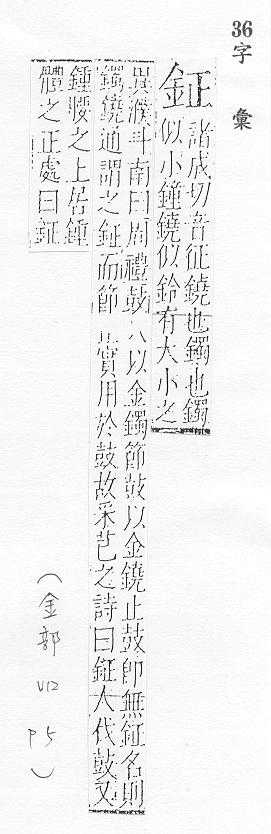 36字彙
鉦
諸成切音征鐃也鐲也鐲
似小鐘鐃似鈴有大小之
異濮斗南曰周禮鼓人以金鐲節鼓以金鐃止鼓卽無鉦名則
鐲鐃通謂之鉦而節止實用於鼓故采芑之詩曰鉦人伐鼓又
鍾腰之上居鍾
體之正處曰鉦
(金部 V12 P5)